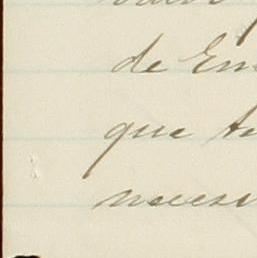 de Em
que te
neces